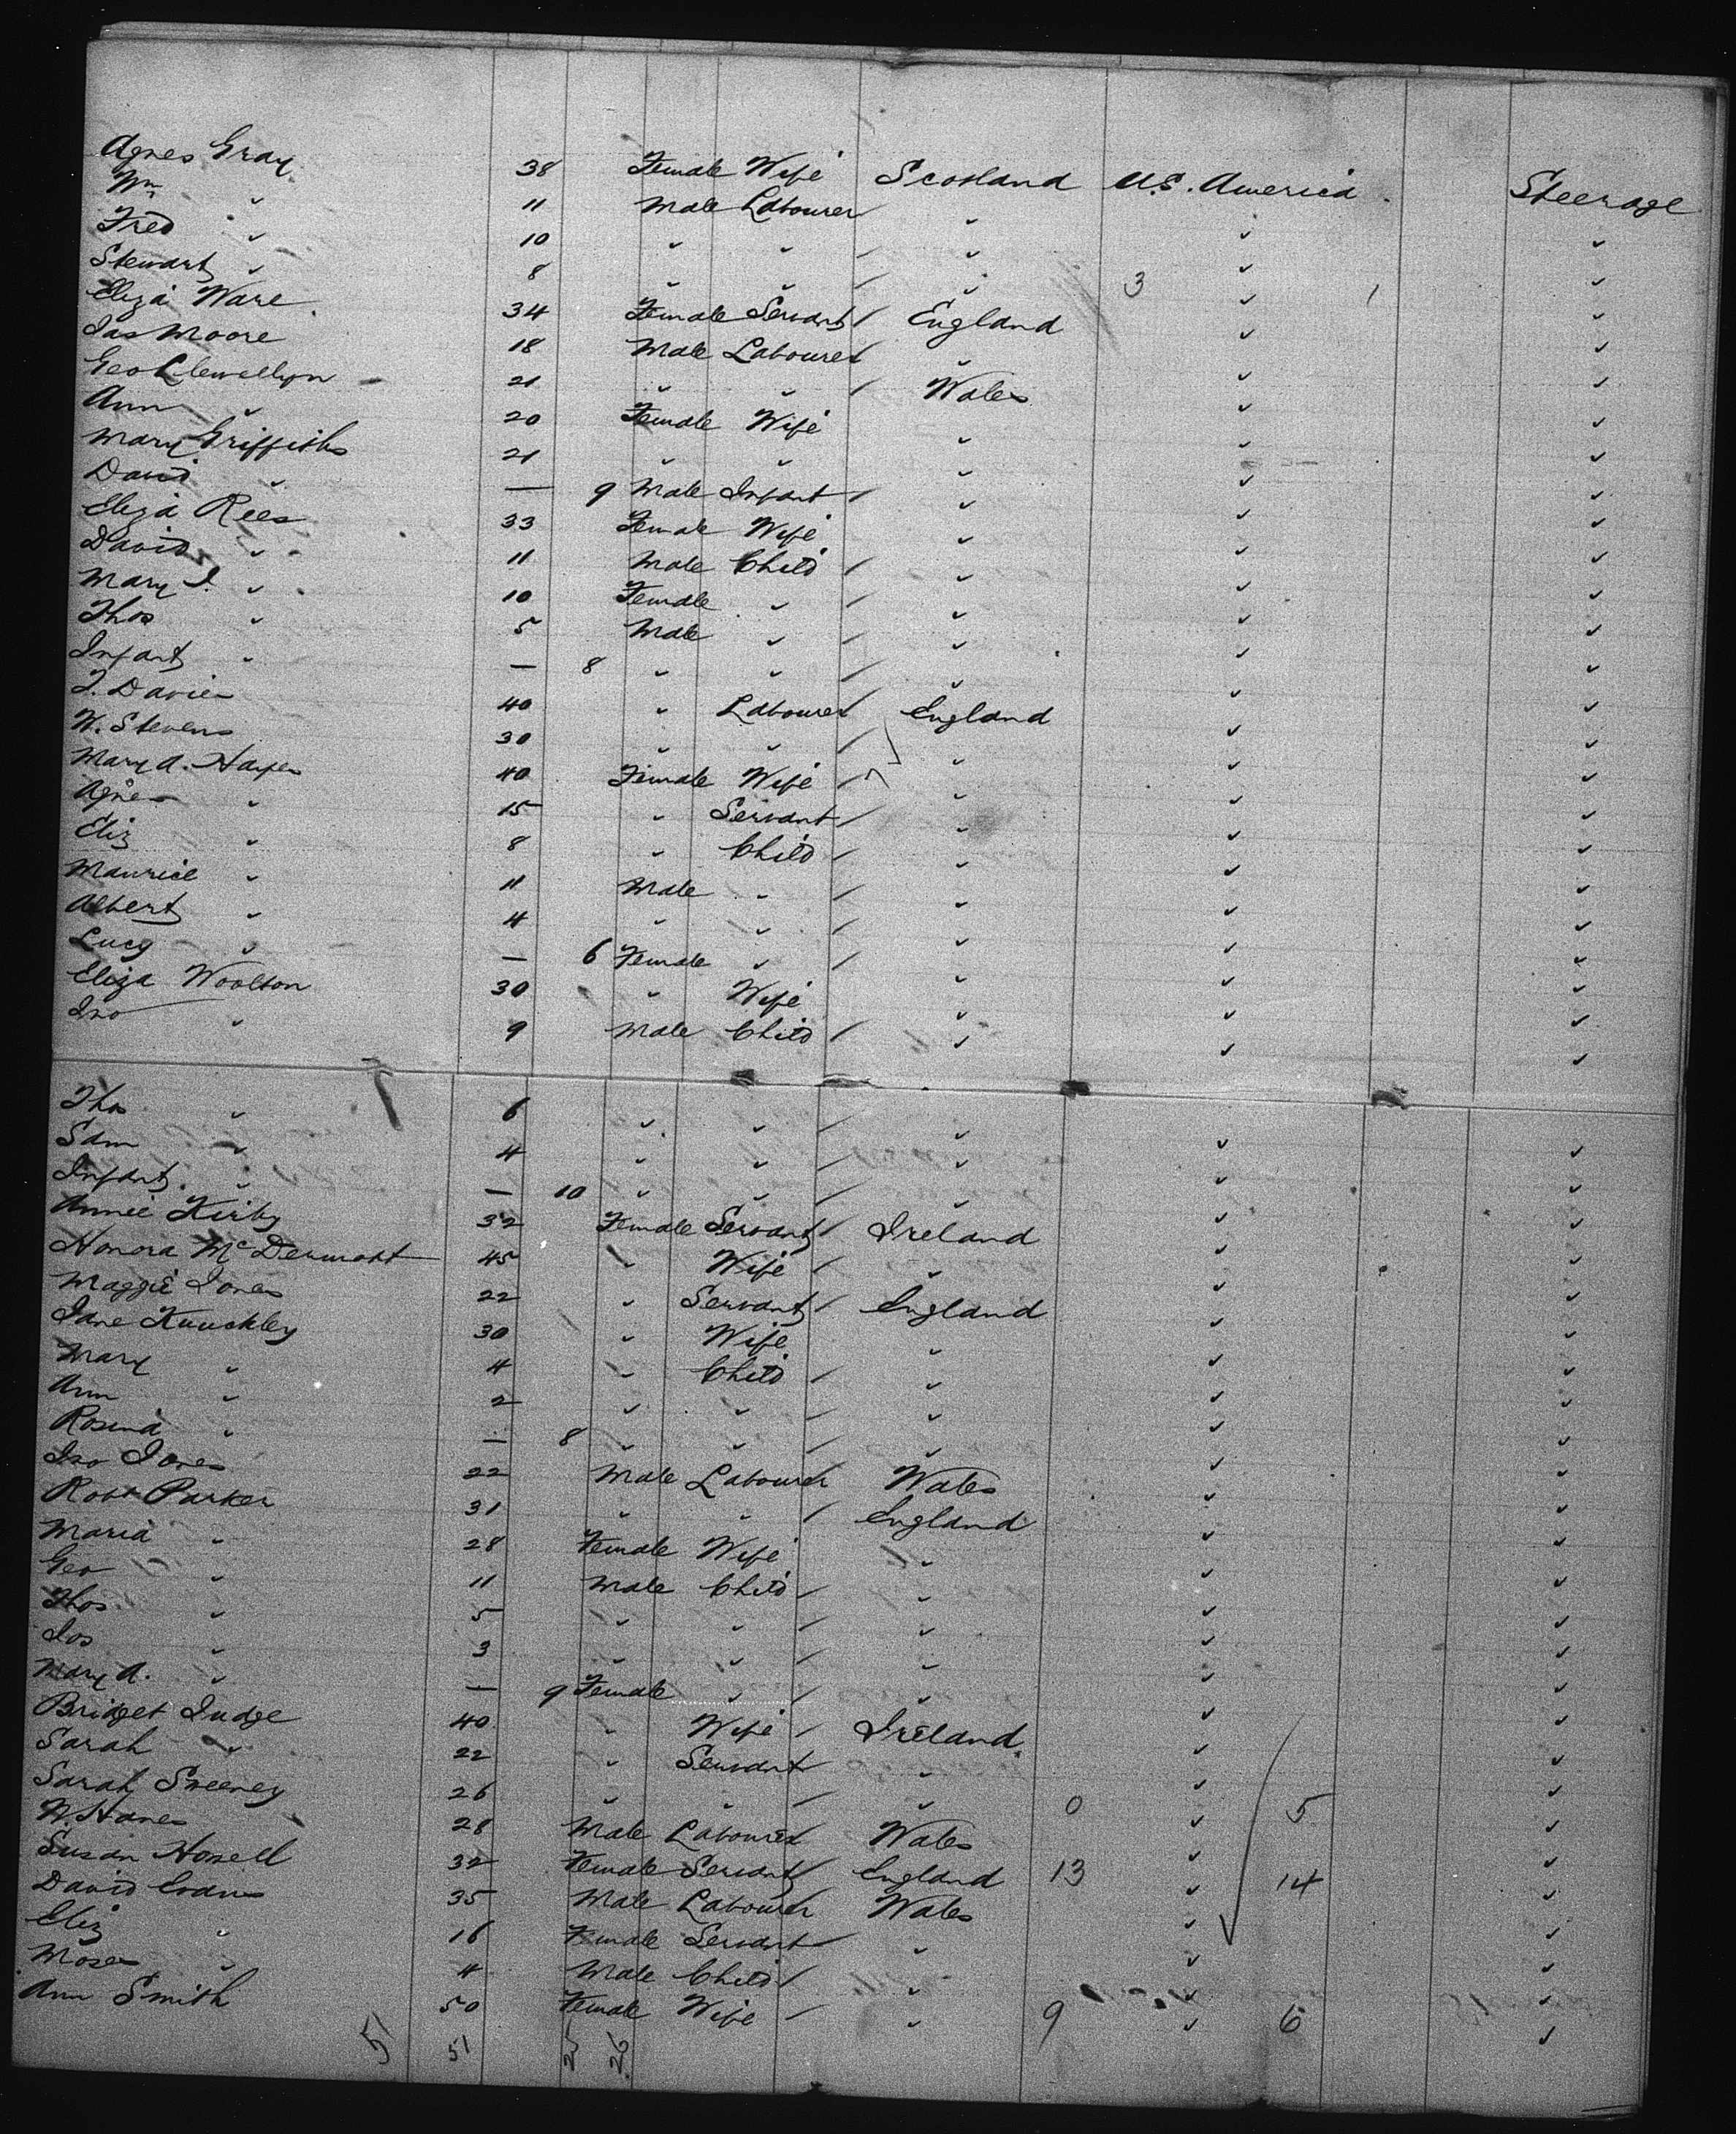 Agnes Gray 38 Female Wife Scotland U.S. America Steerage
Wm " 11 Male Labourer " " "
Fred " 10 " " " " "
Stewart " 8 " " " 3 " "
Eliza Ware 34 Female Servant England " "
Jas Moore 18 Male Labourer " " "
Geo Llewellyn 21 " " Wales " "
Ann " 20 Female Wife " " "
Mary Griffiths 21 " " " " "
David " — 9 Male Infant " " "
Eliza Rees 33 Female Wife " " "
David " 11 Male Child " " "
Mary J. " 10 Female " " " "
Thos " 5 Male " " " "
Infant " — 8 " " " " "
J. Davies 40 " Labourer England " "
W. Stevens 30 " " " " "
Mary A. Hayes 40 Female Wife " " "
Agnes " 15 " Servant " " "
Eliz " 8 " Child " " "
Maurice " 11 Male " " " "
Albert " 4 " " " " "
Lucy " — 6 Female " " " "
Eliza Woolton 30 " Wife " " "
Jno " 9 Male Child " " "
Thos " 6 " " " " "
Sam " 4 " " " " "
Infant " — 10 " " " " "
Annie Kirby 32 Female Servant Ireland " "
Honora McDermott 45 " Wife " " "
Maggie Jones 22 " Servant England " "
Jane Knuckley 30 " Wife " " "
Mary " 4 " Child " " "
Ann " 2 " " " " "
Rosina " — 8 " " " " "
Jno Jones 22 Male Labourer Wales " "
Robt Parker 31 " " England " "
Maria " 28 Female Wife " " "
Geo " 11 Male Child " " "
Thos " 5 " " " " "
Jos " 3 " " " " "
Mary A. " — 9 Female " " " "
Bridget Judge 40 " Wife Ireland " "
Sarah " 22 " Servant " " "
Sarah Sweeney 26 " " " 0 " 5 "
W. 28 Male Labourer Wales " "
Susan Howell 32 Female Servant England 13 " 14 "
David Evans 35 Male Labourer Wales " "
Eliz " 16 Female Servant " " "
Moses " 4 Male Child " " "
Ann Smith 50 Female Wife " 9 " 6 "
51 51 25 26